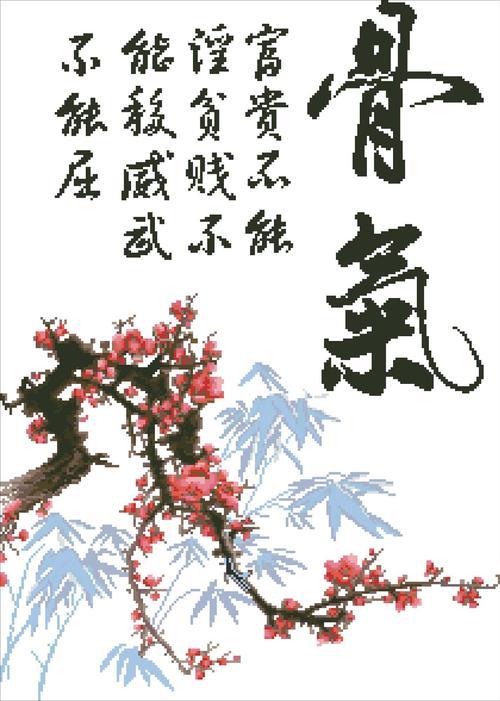 骨氣
富貴不能
淫贫贱不
能移威武
不能屈